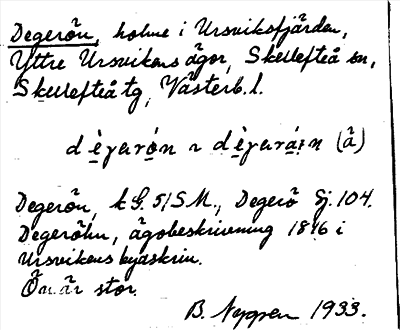 Degerön, holme i Ursviksfjärden,
Yttre Ursvikens ägor, Skellefteå sn,
Skellefteå tg, Västerb. l.
dègarọ́n ~ dègarạ́ın (å)
Degerön, k G. 5/SM., Degerö Gj. 104.
Degeröhn, ägobeskrivning 1846 i
Ursvikens byaskrin.
Ön är stor.
B. Nygren 1933.